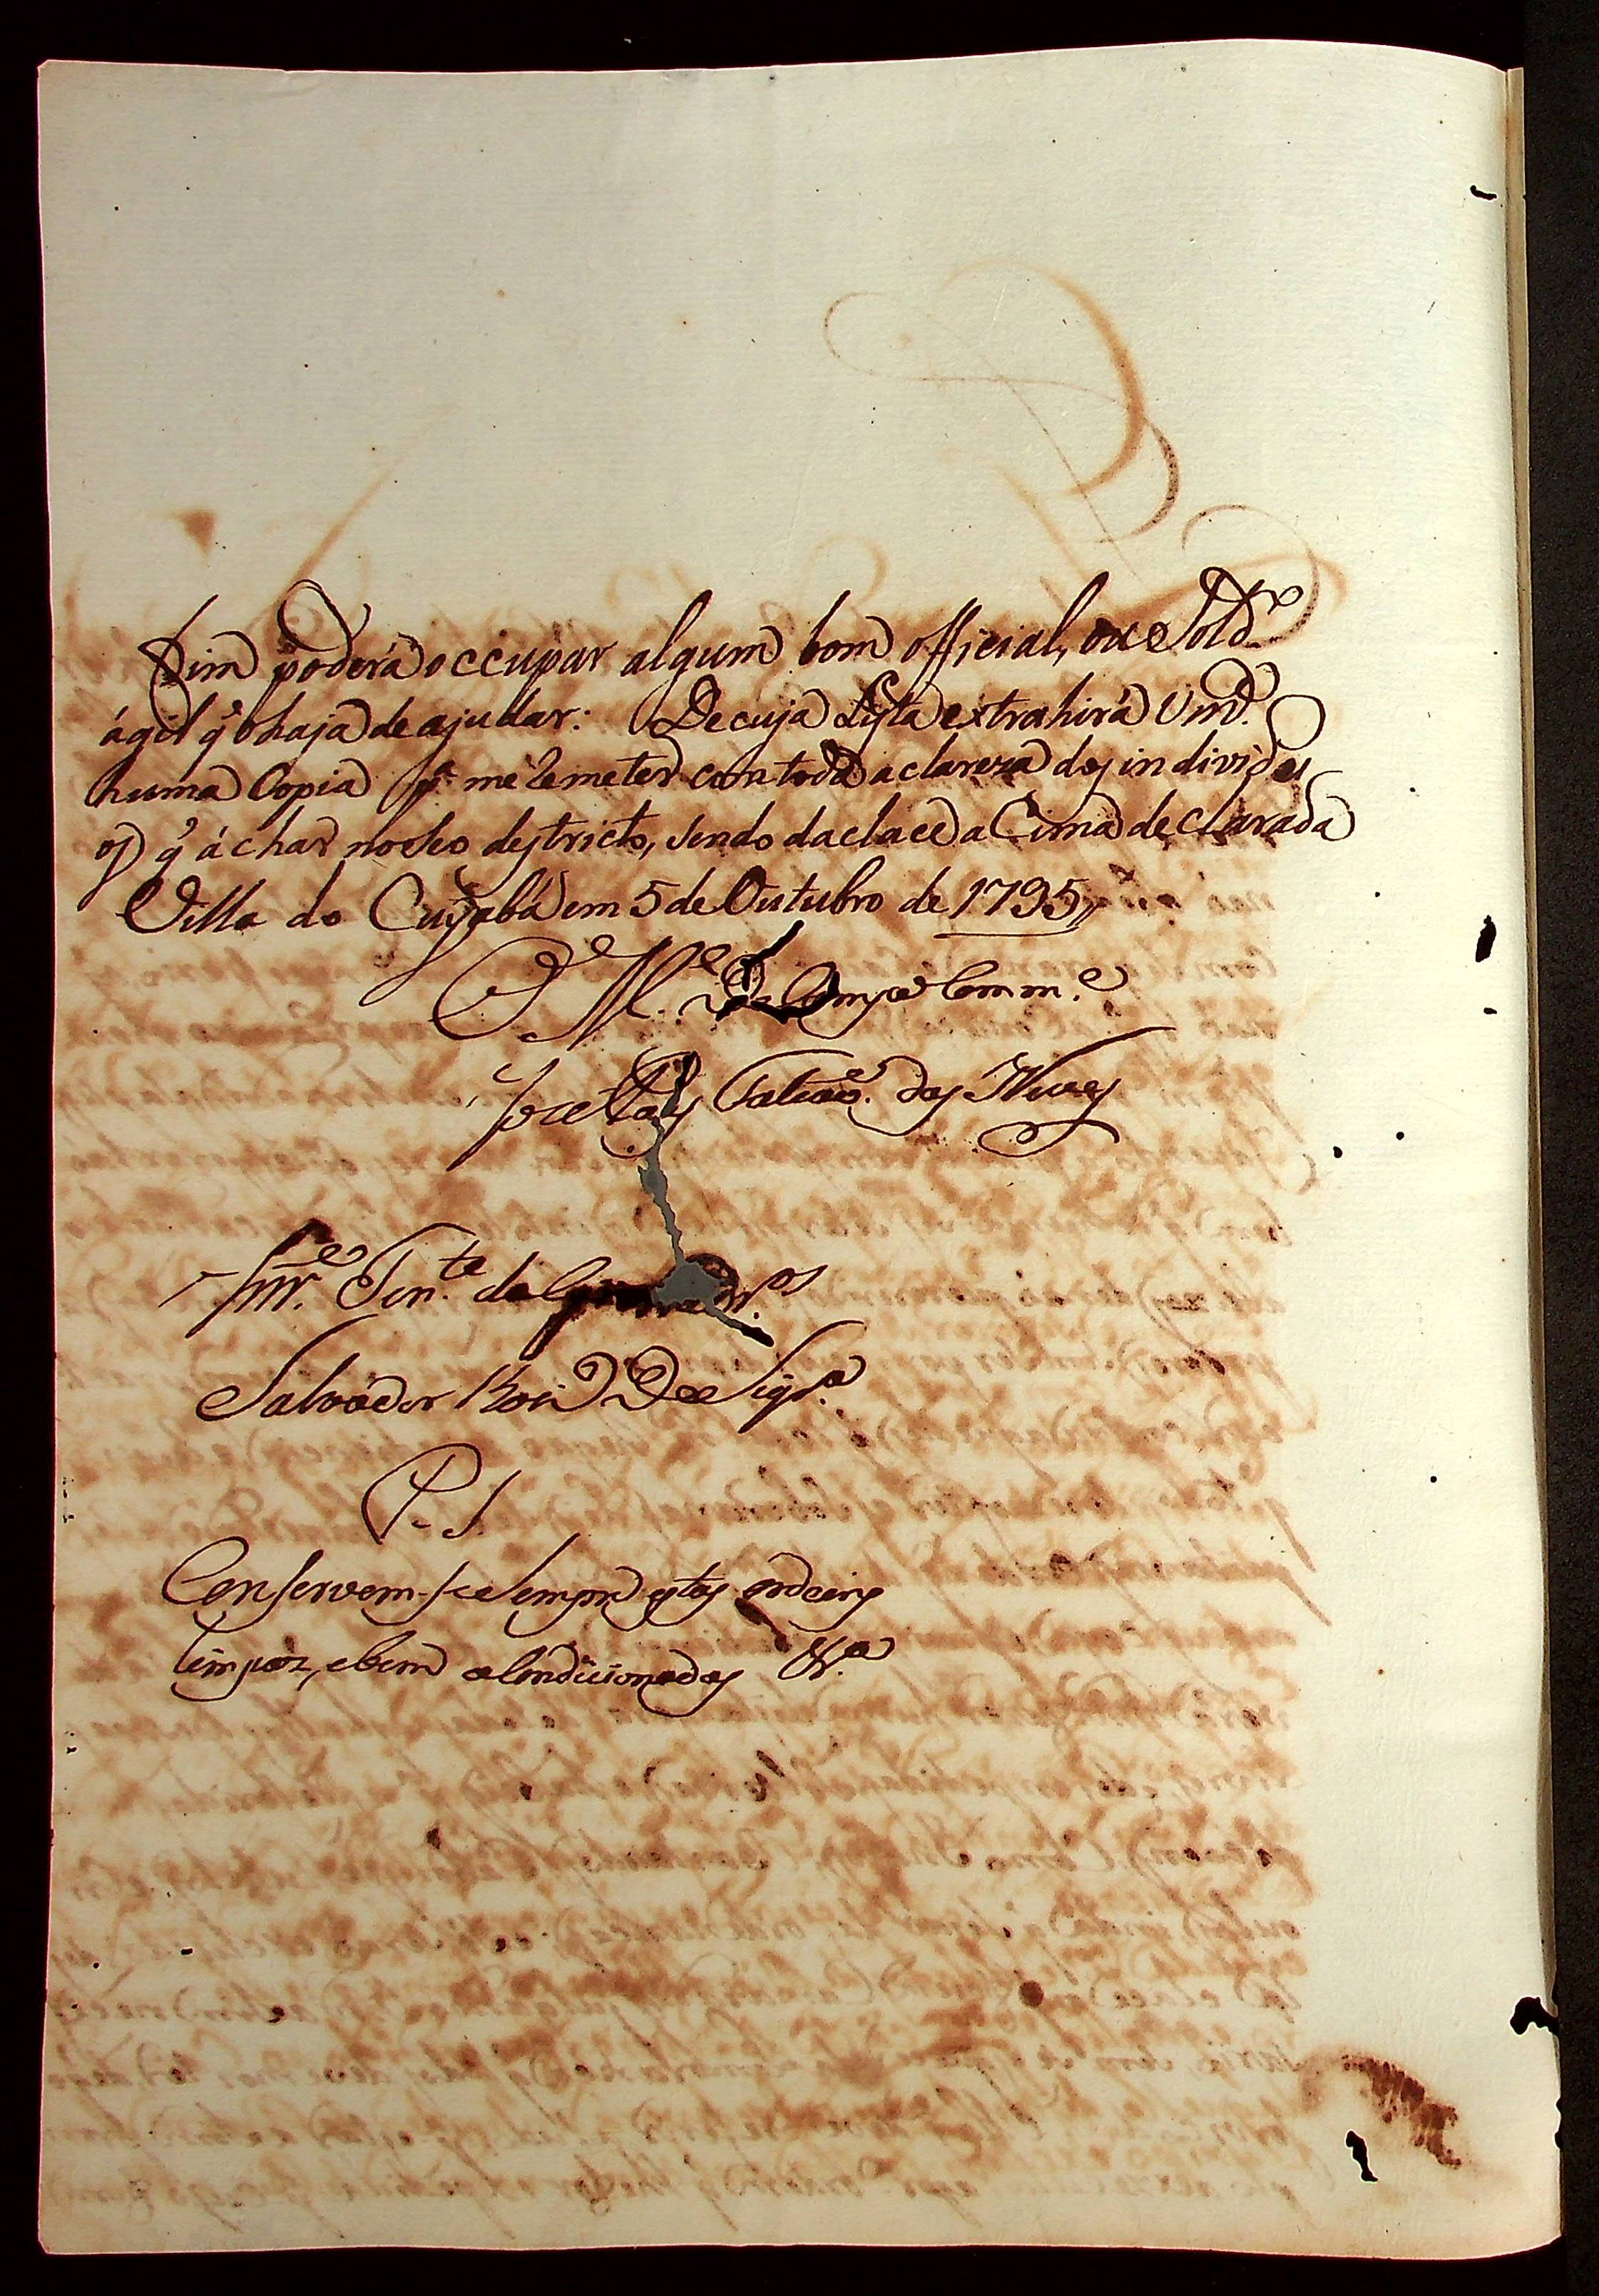 Sim poderá occupar algum bom official, ou Sold.º
ágil q̃ o haja de ajudar: De cuja Lista extrahirá Vm.ce
huma Copia p.ª me Remeter com toda a clareza dos individos
q̃ áchar no seo destricto, sendo da clace a Cima declarada
Villa do Cuyabá em 5 de Outubro de 1795,,
O M.e de Campo Comm.e
Joze Paes Falcaõ das Neves
Snr. Ten.te da
Salvador Roiz De Siqr.ª
P. S.
Conservem-se sempre estas ordeins
limpaz, e bem a Condicionadas &.ª